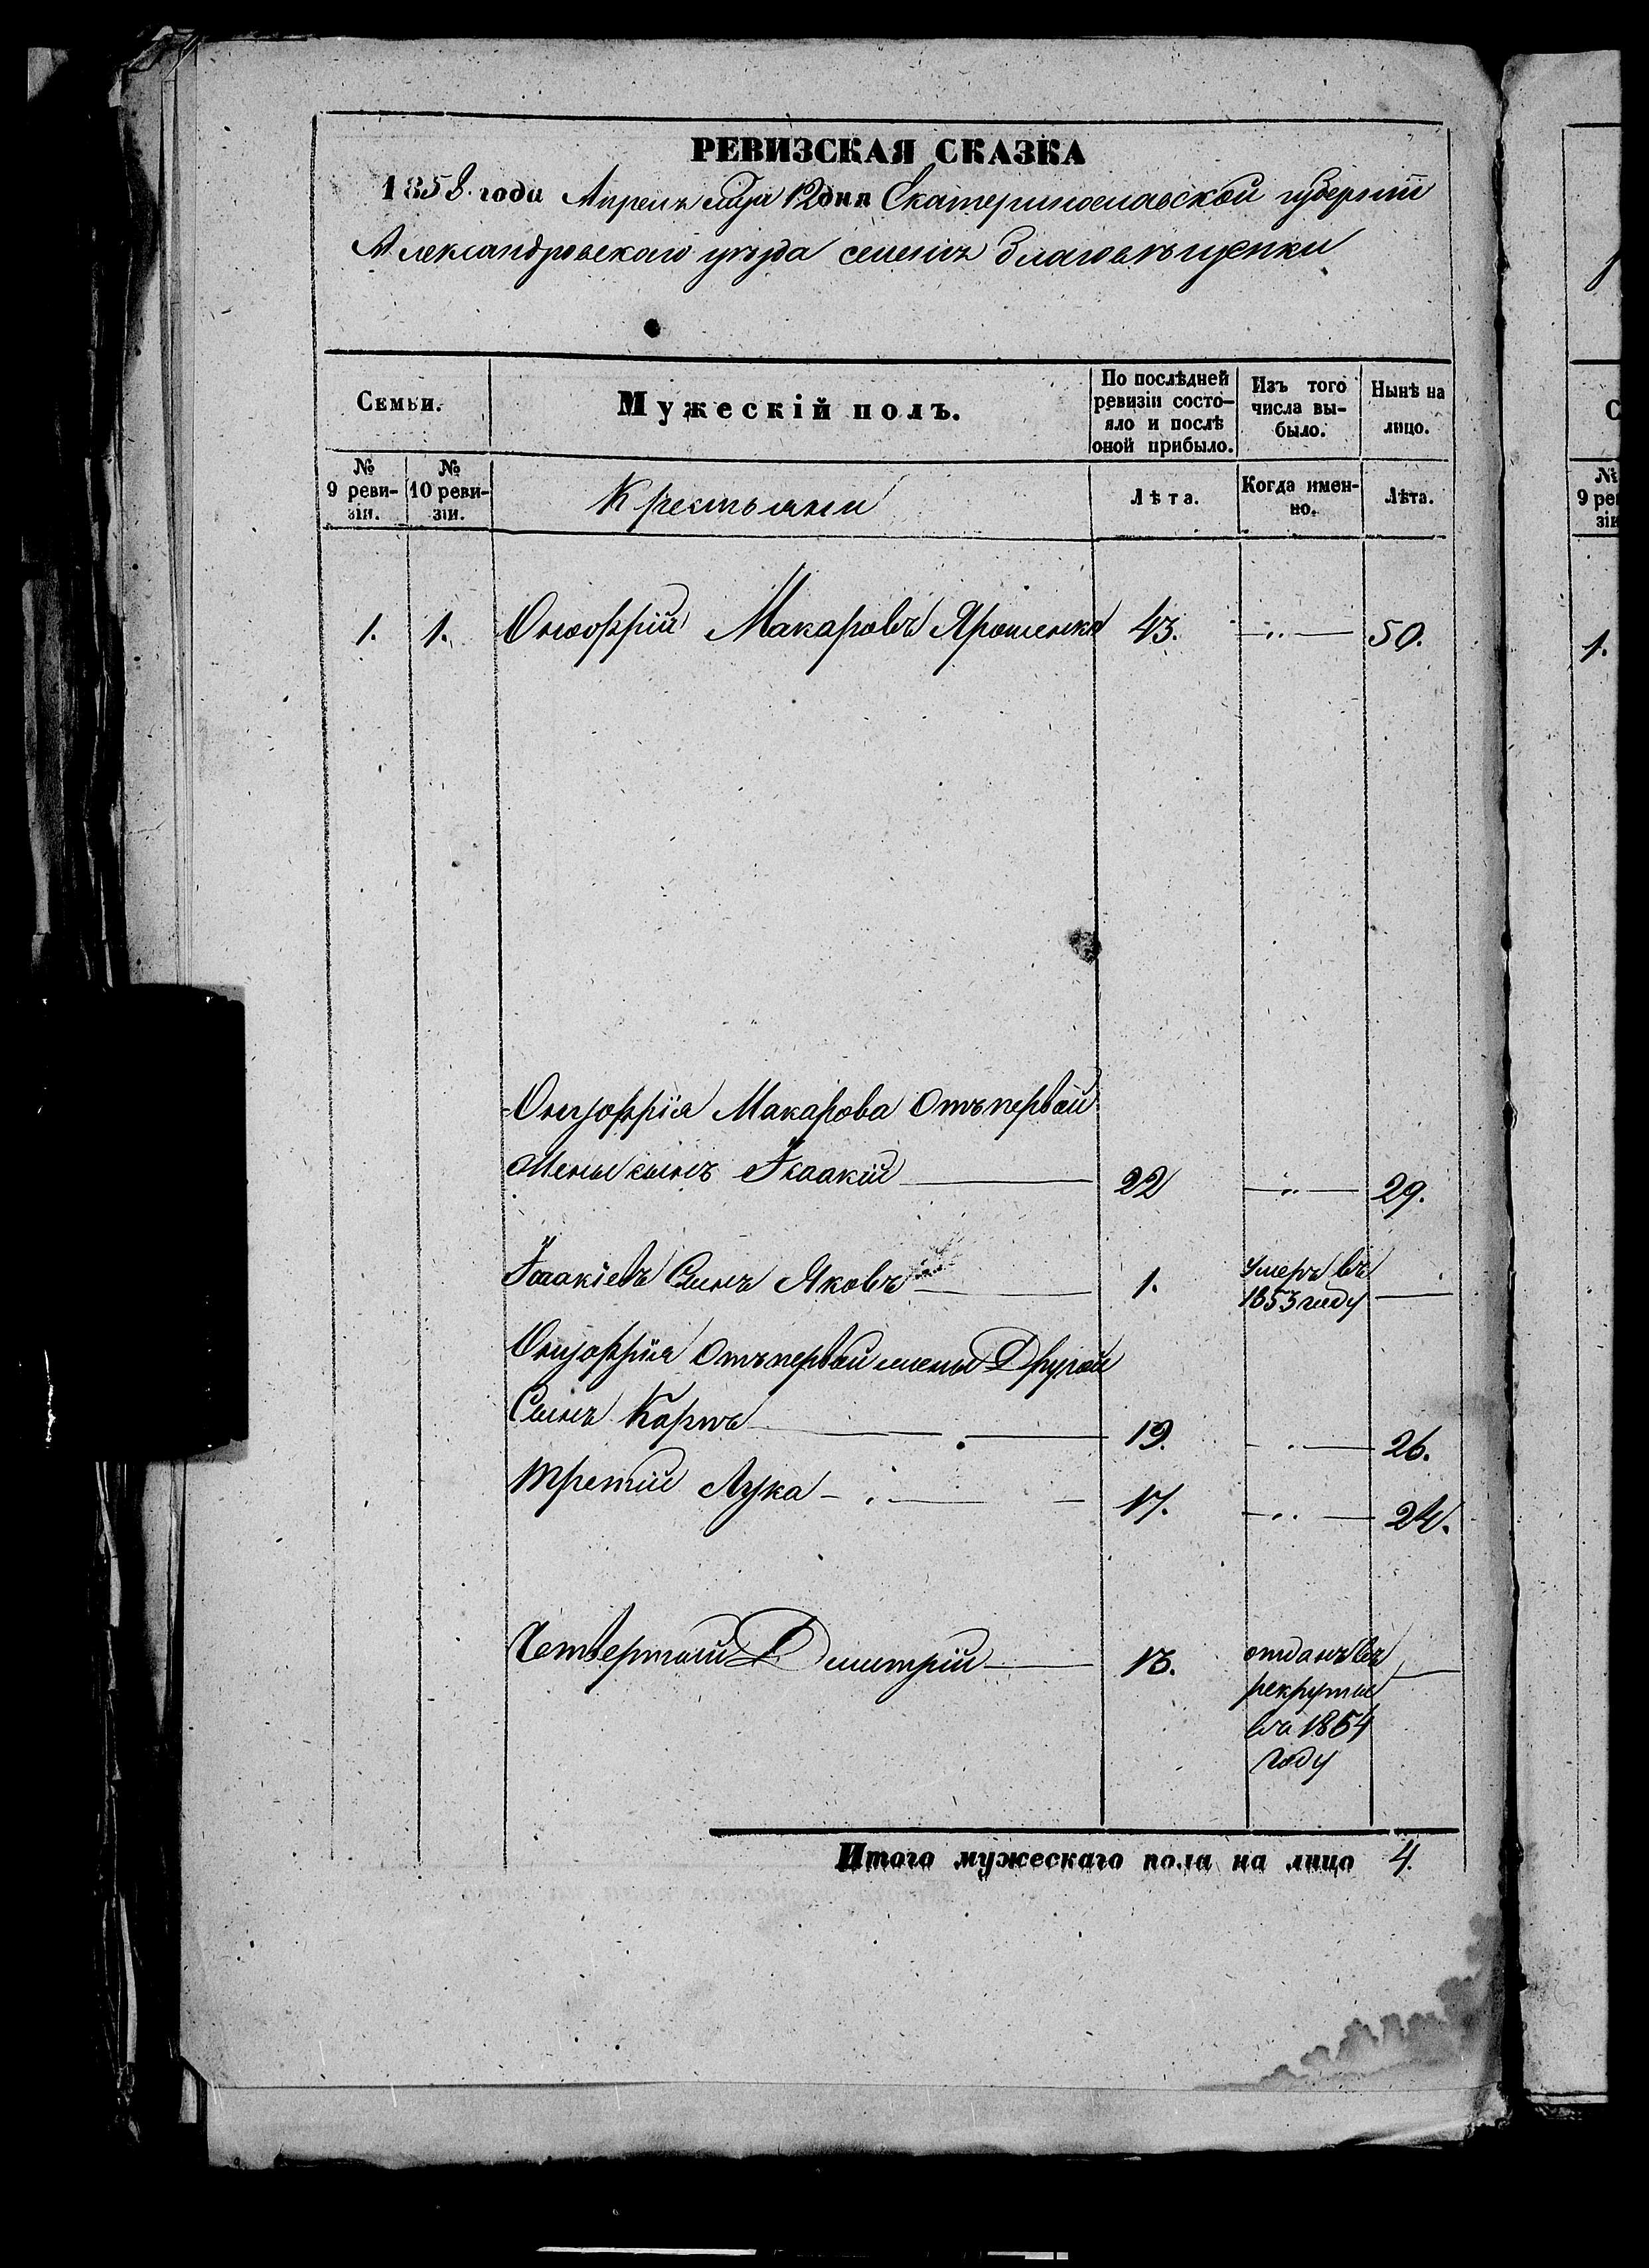 РЕВИЗСКАЯ СКАЗКА
1858 года Апреля мѣсяца 12 дня Екатеринославской губерніи
Александровскаго уѣзда селенія Благовѣщенки
Семьи.
Мужескій полъ.
По послѣдней ревизіи состояло и послѣ оной прибыло.
Изъ того числа выбыло.
Нынѣ на лицо.
№ 9 ревизіи.
№ 10 ревизіи.
Крестьяни
Лѣта.
Когда именно.
Лѣта.
1. 1. Онуофрій Макаровъ Ярошенко 43. —„— 50.
Онуофрія Макарова Отъ первой
жены сынъ Ісаакій — 22 —„— 29.
Ісаакіевъ Сынъ Яковъ — 1. умеръ въ 1853 году —
Онуофрія Отъ первой жены Другой
Сынъ Карпъ — 19. —„— 26.
Третій Лука — 17. —„— 24.
Четвертый Димитрій — 13. отданъ въ
рекруты
въ 1854
году
Итого мужескаго пола на лицо 4.
С
№
9 ре
зі
1.